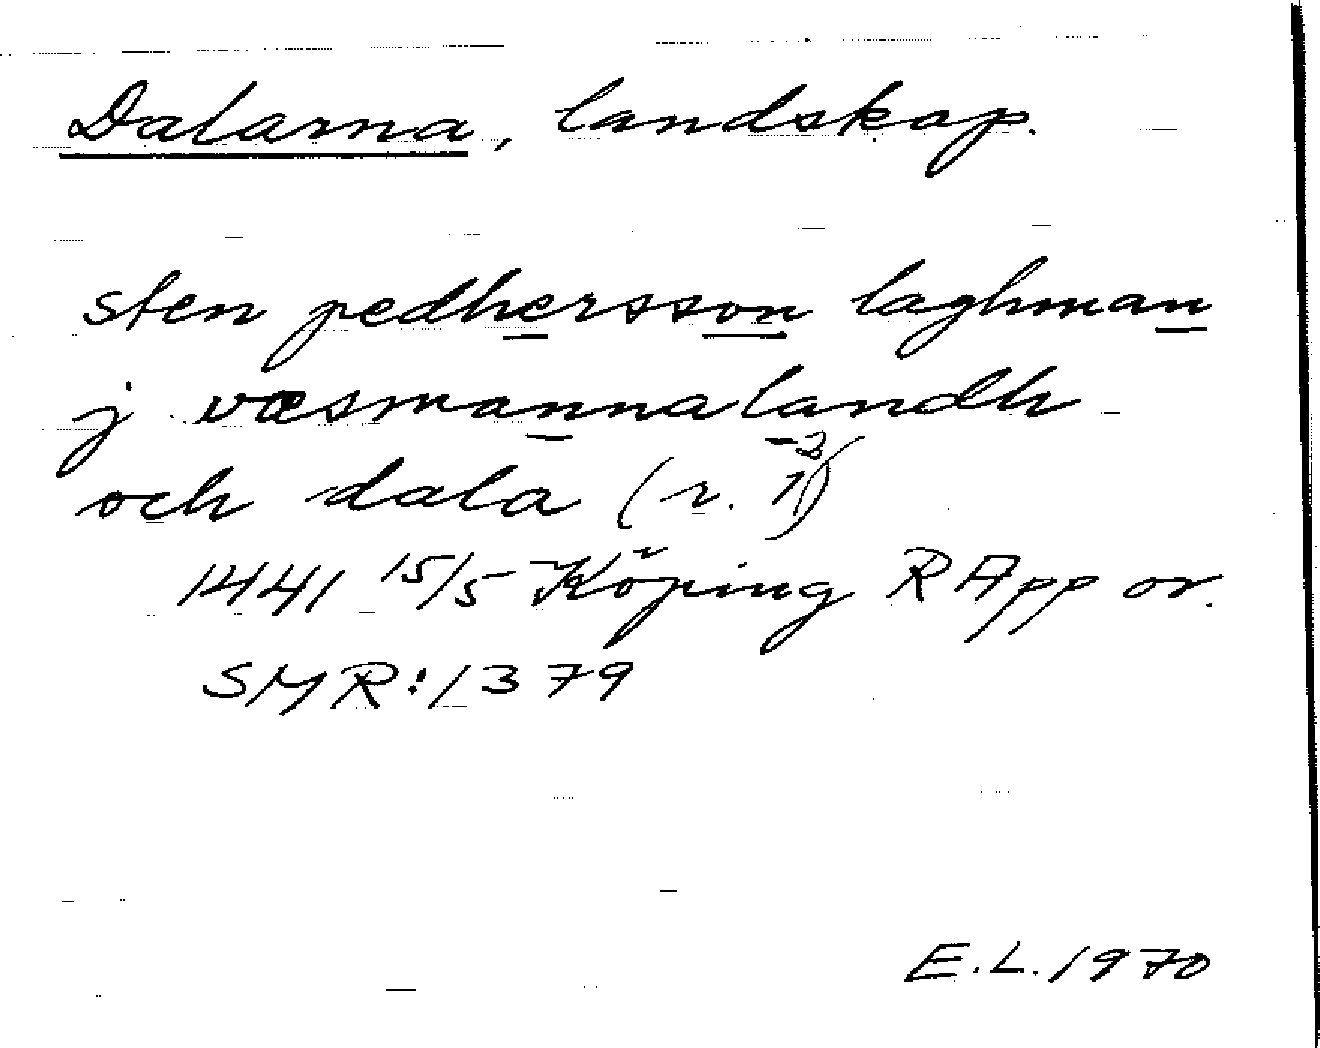 Dalarna, landskap.
sten pedhersson laghman
j væsmannalandh
och dala (r. 1-2)
1441 15/5 Köping RApp or.
SMR: 1379
E.L. 1970